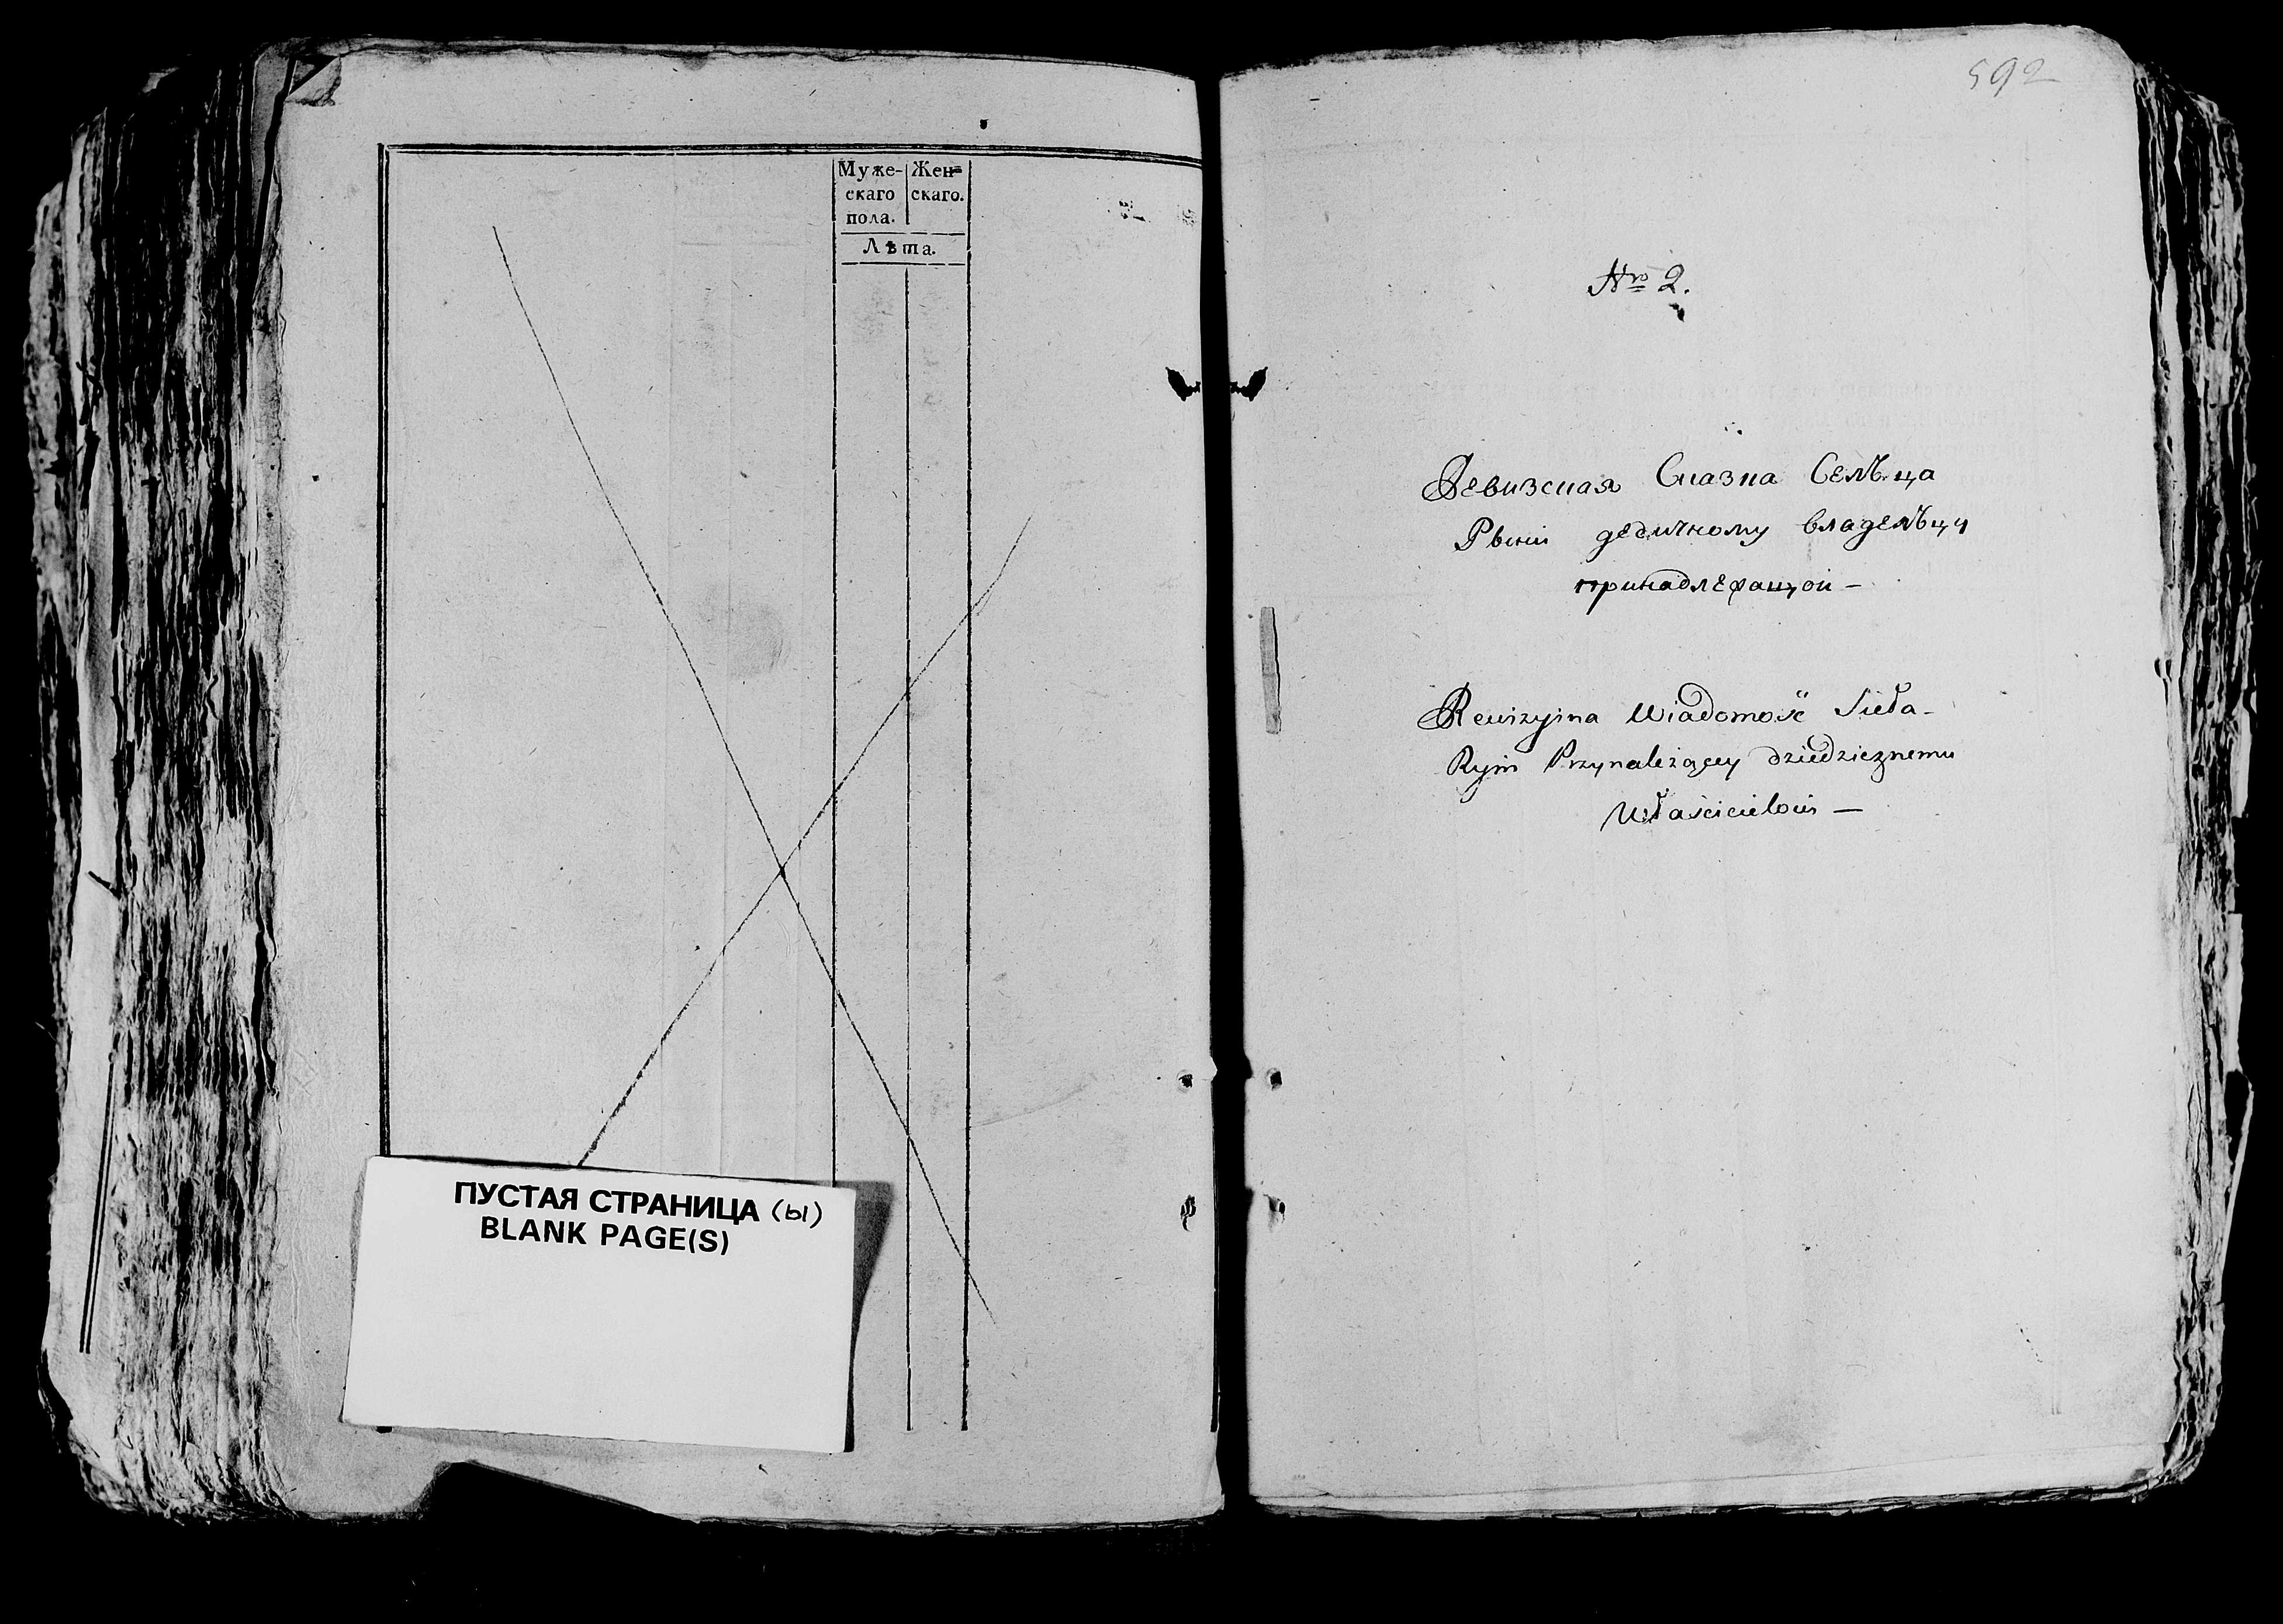 Муже-
скаго
пола.
Жен-
скаго.
Лѣта.
ПУСТАЯ СТРАНИЦА (ы)
BLANK PAGE(S)
592
Nro 2.
Ревизская Сказка Селъца
дедичному владелъцу
принадлежащой —
Rewizyina Wiadomość Sioła
Przynależącey dziedzicznemu
Właścicielowi —